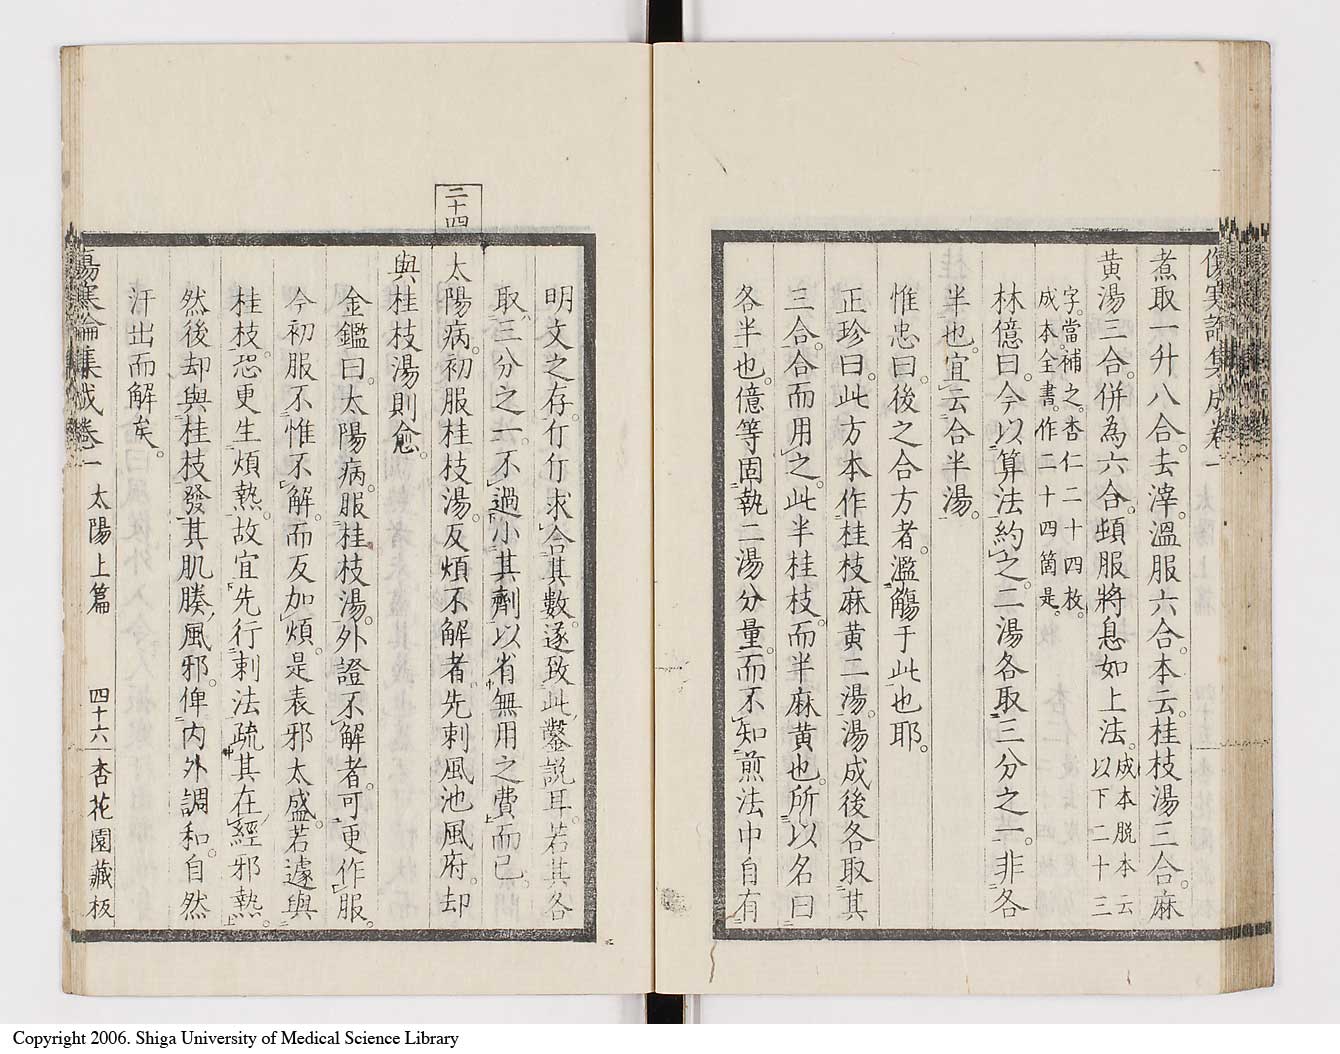 煮取一升八合。去滓。溫服六合。本云。桂枝湯三合。麻
黄湯三合。併為六合。頓服。將息如上法。成本脫本云
以下二十三
字。當補之。杏仁二十四枚。
成本。全書。作二十四箇是。
林億曰。今以算法約之。二湯各取三分之一。非各
半也。宜云合半湯。
惟忠曰。後之合方者。濫觴于此也耶。
正珍曰。此方本作桂枝麻黄二湯。湯成後各取其
三合。合而用之。此半桂枝。而半麻黄也。所以名曰
各半也。億等固執二湯分量。而不知煎法中自有
明文之存。仃仃求合其數。遂致此鑿說耳。若其各
取三分之一。不過小其劑以省無用之費而已。
二十四
太陽病。初服桂枝湯。反煩不解者。先刺風池風府。却
與桂枝湯則愈。
金鑑曰。太陽病。服桂枝湯。外證不解者。可更作服。
今初服不惟不解。而反加煩。是表邪太盛。若遽與
桂枝。恐更生煩熱。故宜先行刺法疏其在經邪熱。
然後却與桂枝發其肌腠風邪。俾內外調和。自然
汗出而解矣。
傷寒論集成卷一 太陽上篇 四十六 杏花園藏板
Copyright 2006. Shiga University of Medical Science Library